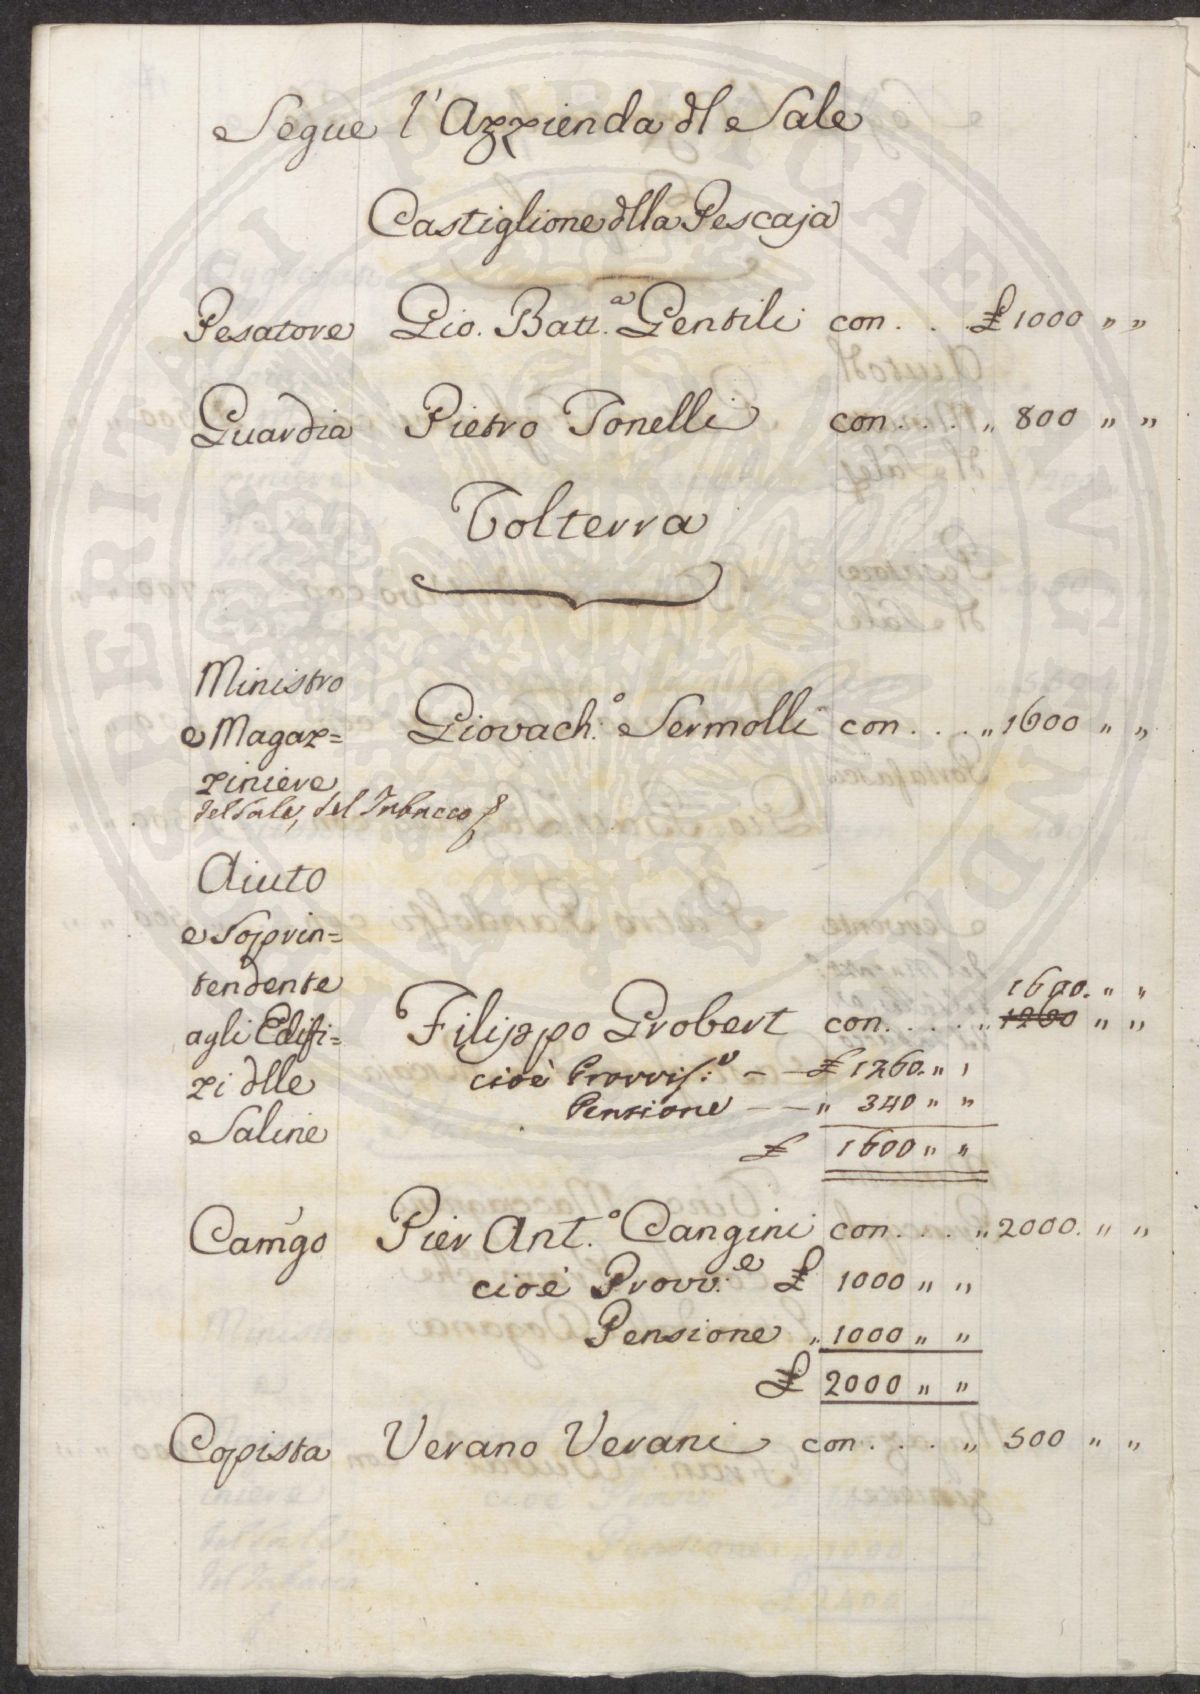 Segue l'Azzienda dl Sale
Castiglione dlla Pescaja
Pesatore Gio. Batt.a Gentili con . . . £ 1000 " "
Guardia Pietro Tonelli con . . . " 800 " "
Volterra
Ministro
e Magaz=
ziniere
del Sale, del Tabacco
Giovach.o Sermolli con . . . " 1600 " "
Aiuto
e Soprin=
tendente
agli Edifi=
zi dlle
Saline
1600. " "
Filippo Grobert con . . . . " 1260 " "
cioè Provvis:e — — £ 1260. " "
Pensione — — " 340 " "
£ 1600 " "
Camgo Pier Ant.o Cangini con . . . " 2000. " "
cioè Provv:e £ 1000 " "
Pensione " 1000 " "
£ 2000 " "
Copista Verano Verani con . . . " 500 " "